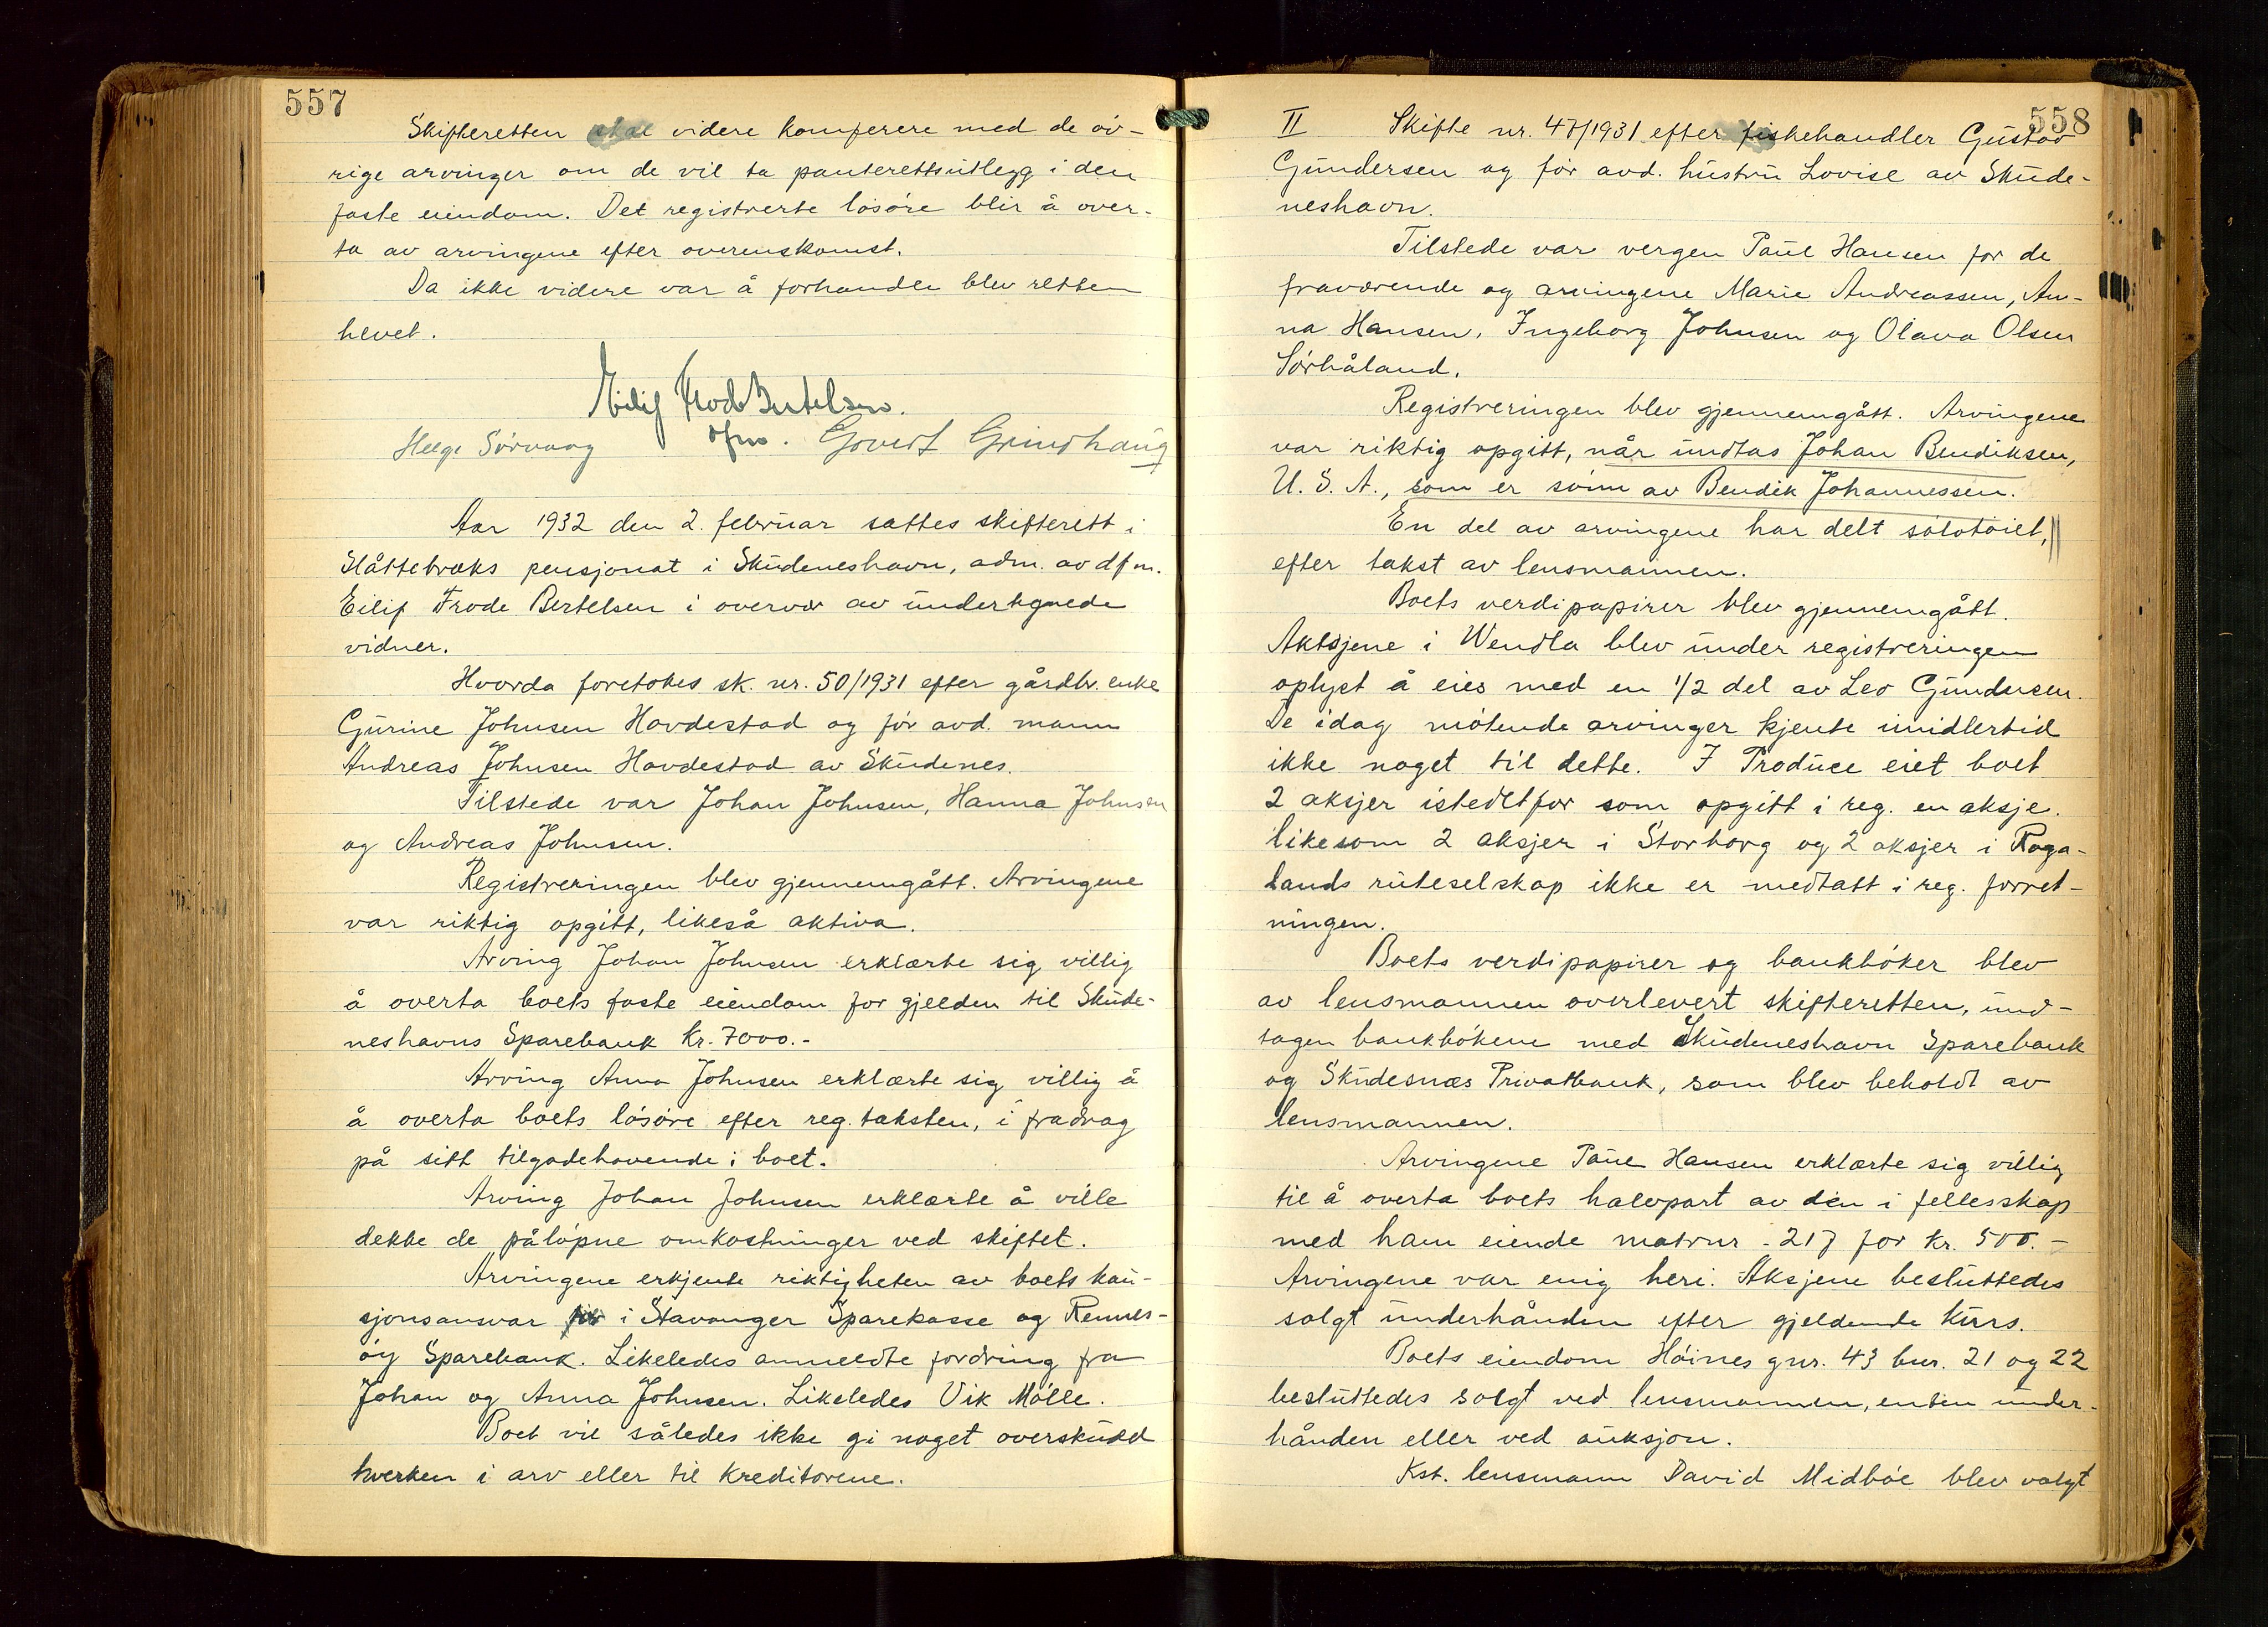 557
Skifteretten skal videre komferere med de øv-
rige arvinger om de vil ta panterettsutlegg i den
faste eiendom. Det registrerte løsøre blir å over-
ta av arvingene efter overenskomst.
Da ikke videre var å forhandle blev retten
hevet.
Eilif Frode Bertelsen.
dfm.
Helge Sörvaag
Govert Grindhaug
Aar 1932 den 2. februar sattes skifterett i
Slåttebræks pensjonat i Skudeneshavn, adm. av dfm.
Eilif Frode Bertelsen i overvær av undertegnede
vidner.
Hvorda foretokes sk. nr. 50/1931 efter gårdbr. enke
Gurine Johnsen Hovdestad og før avd. mann
Andreas Johnsen Hovdestad av Skudenes.
Tilstede var Johan Johnsen, Hanna Johnsen
og Andreas Johnsen.
Registreringen blev gjennemgått. Arvingene
var riktig opgitt, likeså aktiva.
Arving Johan Johnsen erklærte sig villig
å overta boets faste eiendom for gjelden til Skude-
neshavns Sparebank kr. 7000.-
Arving Anna Johnsen erklærte sig villig å
å overta boets løsøre efter reg. taksten, i fradrag
på sitt tilgodehavende i boet.
Arving Johan Johnsen erklærte å ville
dekke de påløpne omkostninger ved skiftet.
Arvingene erkjente riktigheten av boets kau-
sjonsansvar i Stavanger Sparekasse og Rennes-
øy Sparebank. Likeledes anmeldte fordring fra
Johan og Anna Johnsen. Likeledes Vik Mølle.
Boet vil således ikke gi noget overskudd
hverken i arv eller til kreditorene.
558
II Skifte nr. 47/1931 efter fiskehandler Gustav
Gundersen og før avd. hustru Lovise av Skude-
neshavn.
Tilstede var vergen Paul Hansen for de
fraværende og arvingene Marie Andreassen, An-
na Hansen, Ingeborg Johnsen og Olava Olsen
Sørhåland.
Registreringen blev gjennemgått. Arvingene
var riktig opgitt, når undtas Johan Bendiksen,
U.S.A., som er sønn av Bendik Johannessen.
En del av arvingene har delt sølvtøiet,
efter takst av lensmannen.
Boets verdipapirer blev gjennemgått.
Aktsjene i Wendla blev under registreringen
oplyst å eies med en 1/2 del av Leo Gundersen.
De idag møtende arvinger kjente imidlertid
ikke noget til dette. I Produce eiet boet
2 aksjer istedetfor som opgitt i reg. en aksje.
likesom 2 aksjer i Storborg og 2 aksjer i Roga-
lands ruteselskap ikke er medtatt i reg. forret-
ningen.
Boets verdipapirer og bankbøker blev
av lensmannen overlevert skifteretten, und-
tagen bankbøkene med Skudeneshavn Sparebank
og Skudesnæs Privatbank, som blev beholdt av
lensmannen.
Arvingene Paul Hansen erklærte sig villig
til å overta boets halvpart av den i fellesskap
med ham eiende matrnr. 217 for kr. 500.-
Arvingene var enig heri. Aksjene besluttedes
solgt underhånden efter gjeldende kurs.
Boets eiendom Høines gnr. 43 bnr. 21 og 22
besluttedes solgt ved lensmannen, enten under-
hånden eller ved auksjon.
Kst. lensmann David Midbøe blev valgt